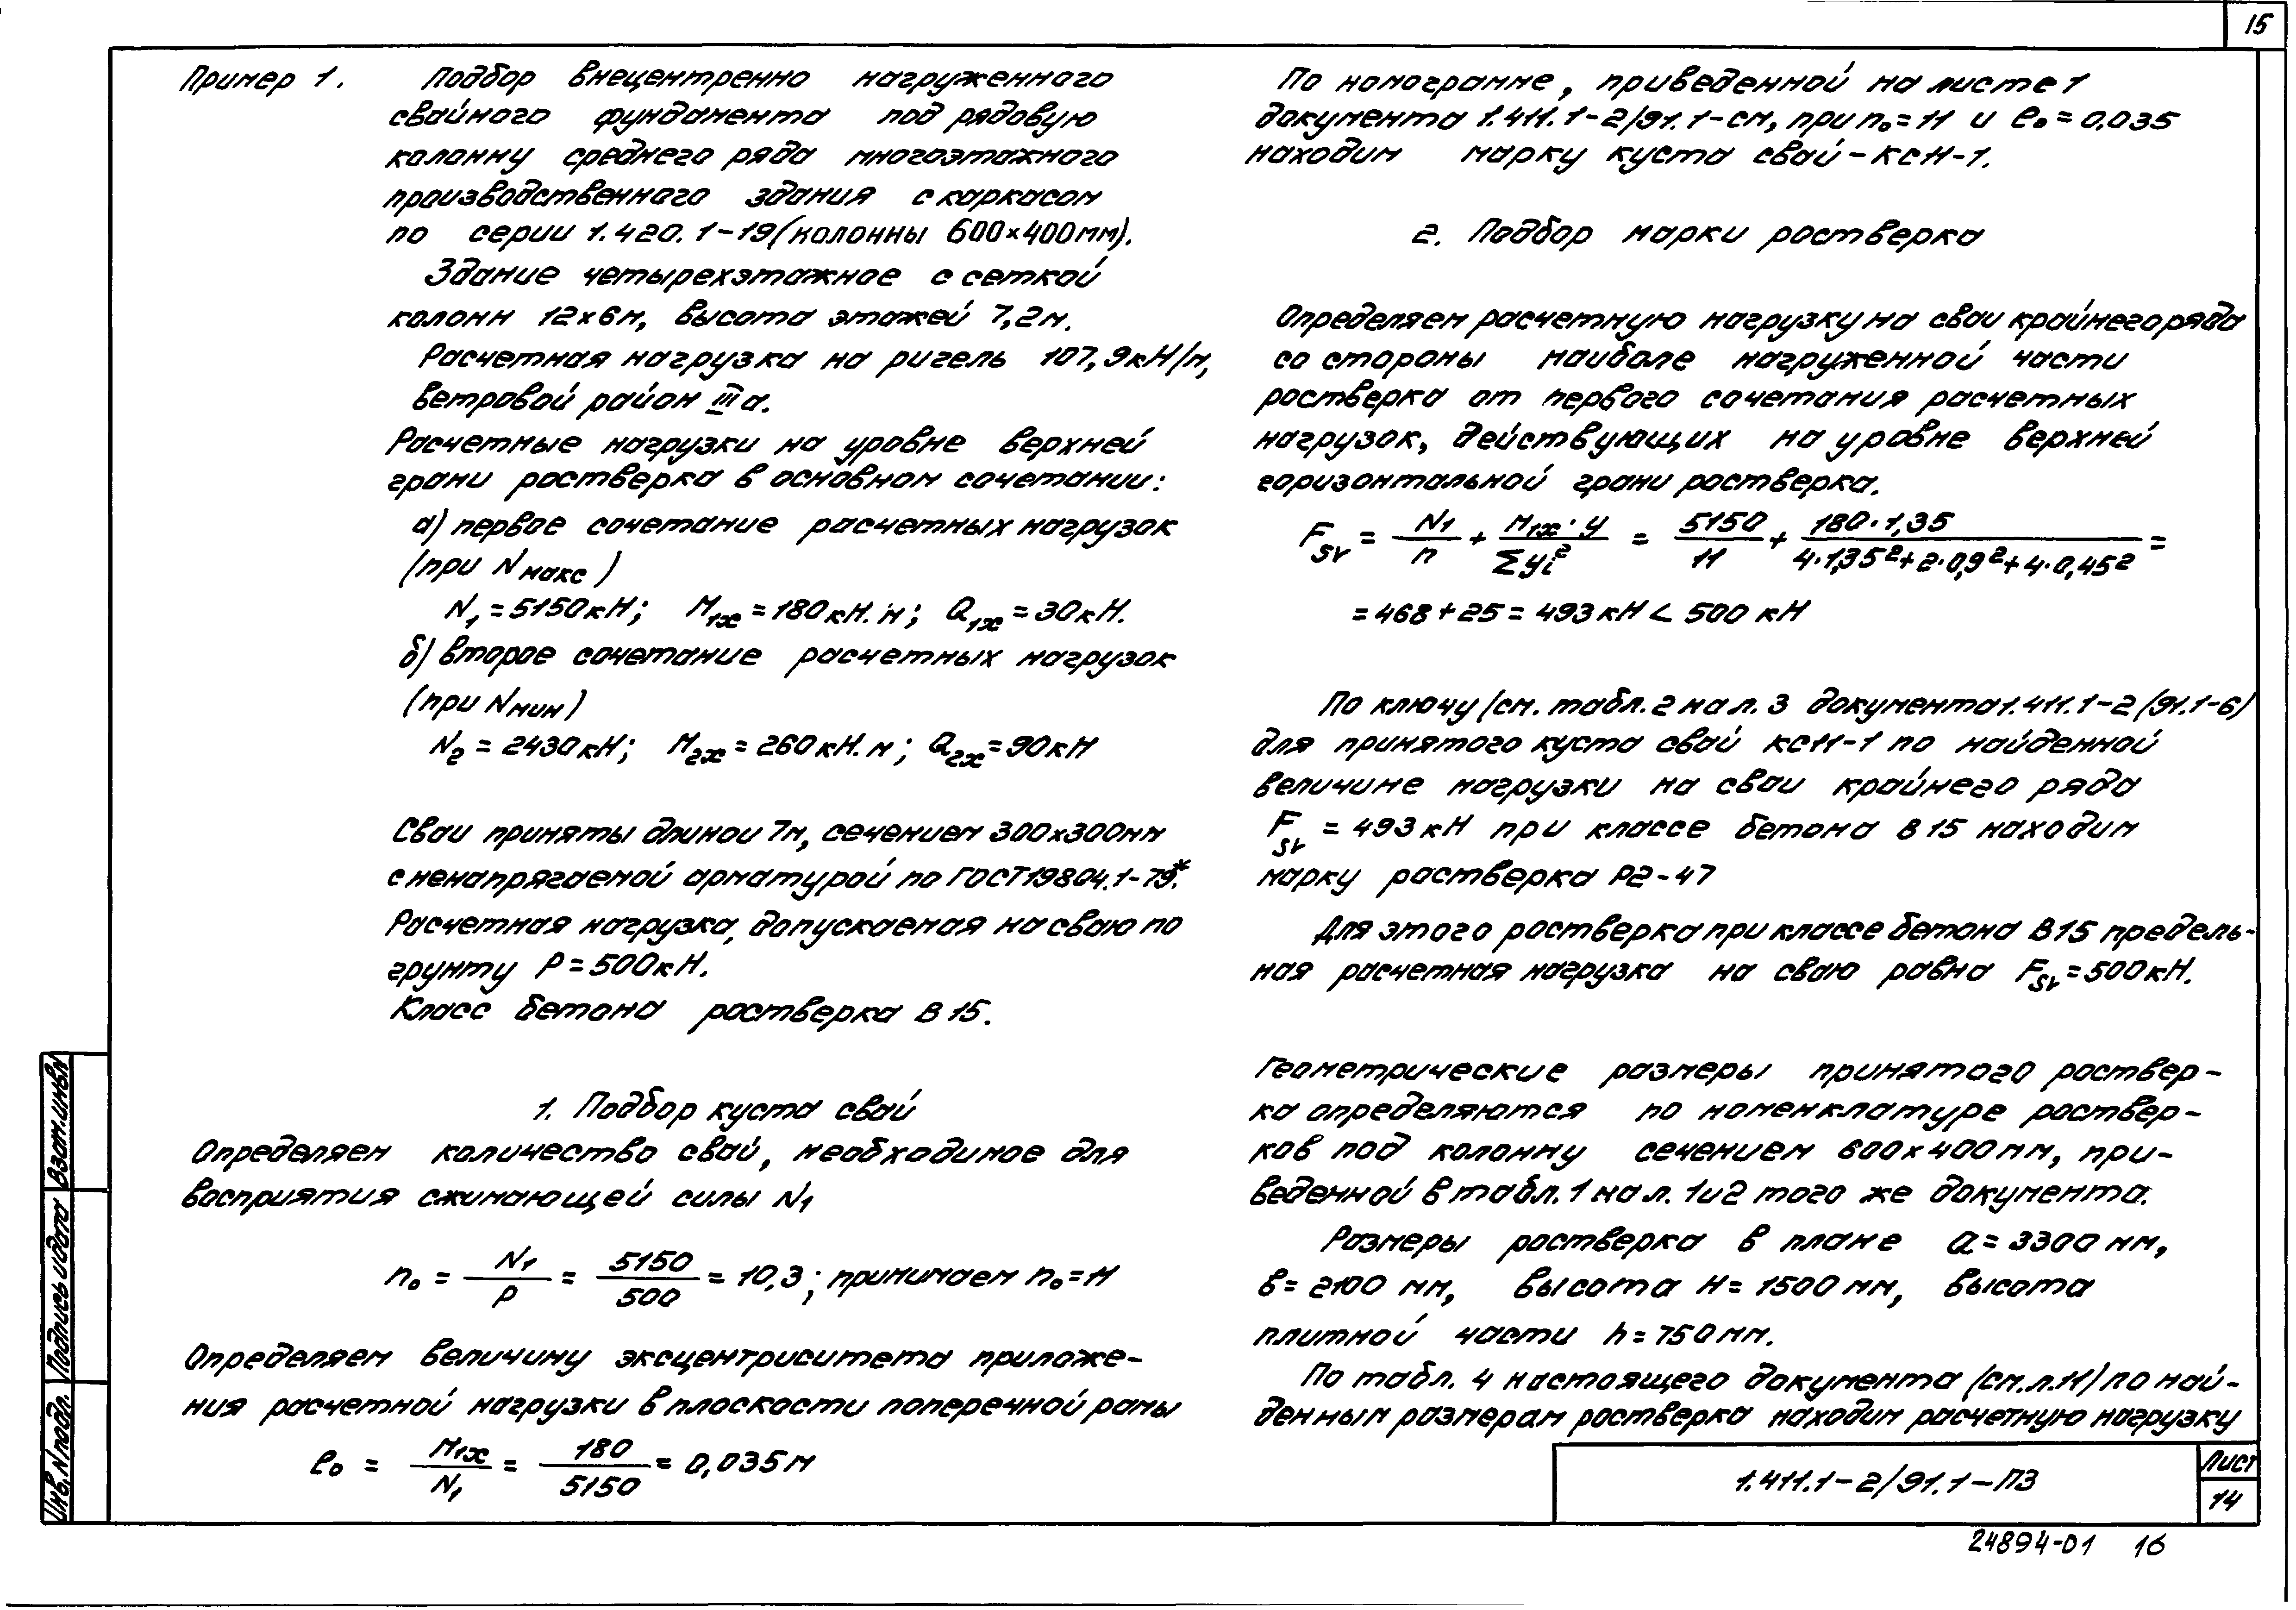 15
Пример 1. Подбор внецентренно нагруженного
свайного фундамента под рядовую
колонну среднего ряда многоэтажного
производственного здания с каркасом
по серии 1.420.1-19 (колонны 600×400мм).
Здание четырехэтажное с сеткой
колонн 12×6м, высота этажей 7,2м.
Расчетная нагрузка на ригель 107,9кН/м,
ветровой район IIIа.
Расчетные нагрузки на уровне верхней
грани ростверка в основном сочетании:
а) первое сочетание расчетных нагрузок
(при Nмакс)
N₁=5150кН; M₁ₓ=180кН.м; Q₁ₓ=30кН.
б) второе сочетание расчетных нагрузок
(при Nмин)
N₂=2430кН; M₂ₓ=260кН.м; Q₂ₓ=90кН
Сваи приняты длиной 7м, сечением 300×300мм
с ненапрягаемой арматурой по ГОСТ19804.1-79*.
Расчетная нагрузка, допускаемая на сваю по
грунту P=500кН.
Класс бетона ростверка В15.
1. Подбор куста свай
Определяем количество свай, необходимое для
восприятия сжимающей силы N₁
n₀ = N₁/P = 5150/500 = 10,3; принимаем n₀=11
Определяем величину эксцентриситета приложе-
ния расчетной нагрузки в плоскости поперечной рамы
e₀ = M₁ₓ/N₁ = 180/5150 = 0,035м
По номограмме, приведенной на листе 1
документа 1.411.1-2/91.1-см, при n₀=11 и e₀=0,035
находим марку куста свай-КС11-1.
2. Подбор марки ростверка
Определяем расчетную нагрузку на сваи крайнего ряда
со стороны наиболе нагруженной части
ростверка от первого сочетания расчетных
нагрузок, действующих на уровне верхней
горизонтальной грани ростверка.
F_sr = N₁/n + M₁ₓ·y/Σyᵢ² = 5150/11 + 180·1,35/4·1,35²+2·0,9²+4·0,45² =
=468+25=493кН<500кН
По ключу (см. табл.2 на л.3 документа 1.411.1-2/91.1-6)
для принятого куста свай КС11-1 по найденной
величине нагрузки на сваи крайнего ряда
F_sr = 493кН при классе бетона В15 находим
марку ростверка Р2-47
Для этого ростверка при классе бетона В15 предель-
ная расчетная нагрузка на сваю равна F_sr=500кН.
Геометрические размеры принятого роствер-
ка определяются по номенклатуре роствер-
ков под колонну сечением 600×400мм, при-
веденной в табл.1 на л. 1и2 того же документа.
Размеры ростверка в плане a=3300мм,
в=2100мм, высота H=1500мм, высота
плитной части h=750мм.
По табл. 4 настоящего документа (см.л.11) по най-
денным размерам ростверка находим расчетную нагрузку
Взам.инв.N
Подпись и дата
Инв.N подл.
1.411.1-2/91.1-ПЗ
Лист
14
24894-01 16